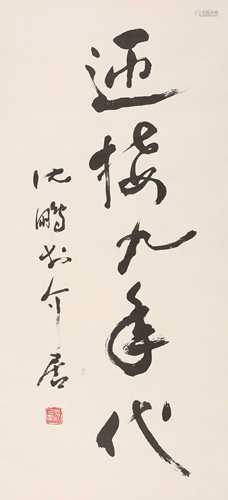 迎接九十年代
沈鹏于介居